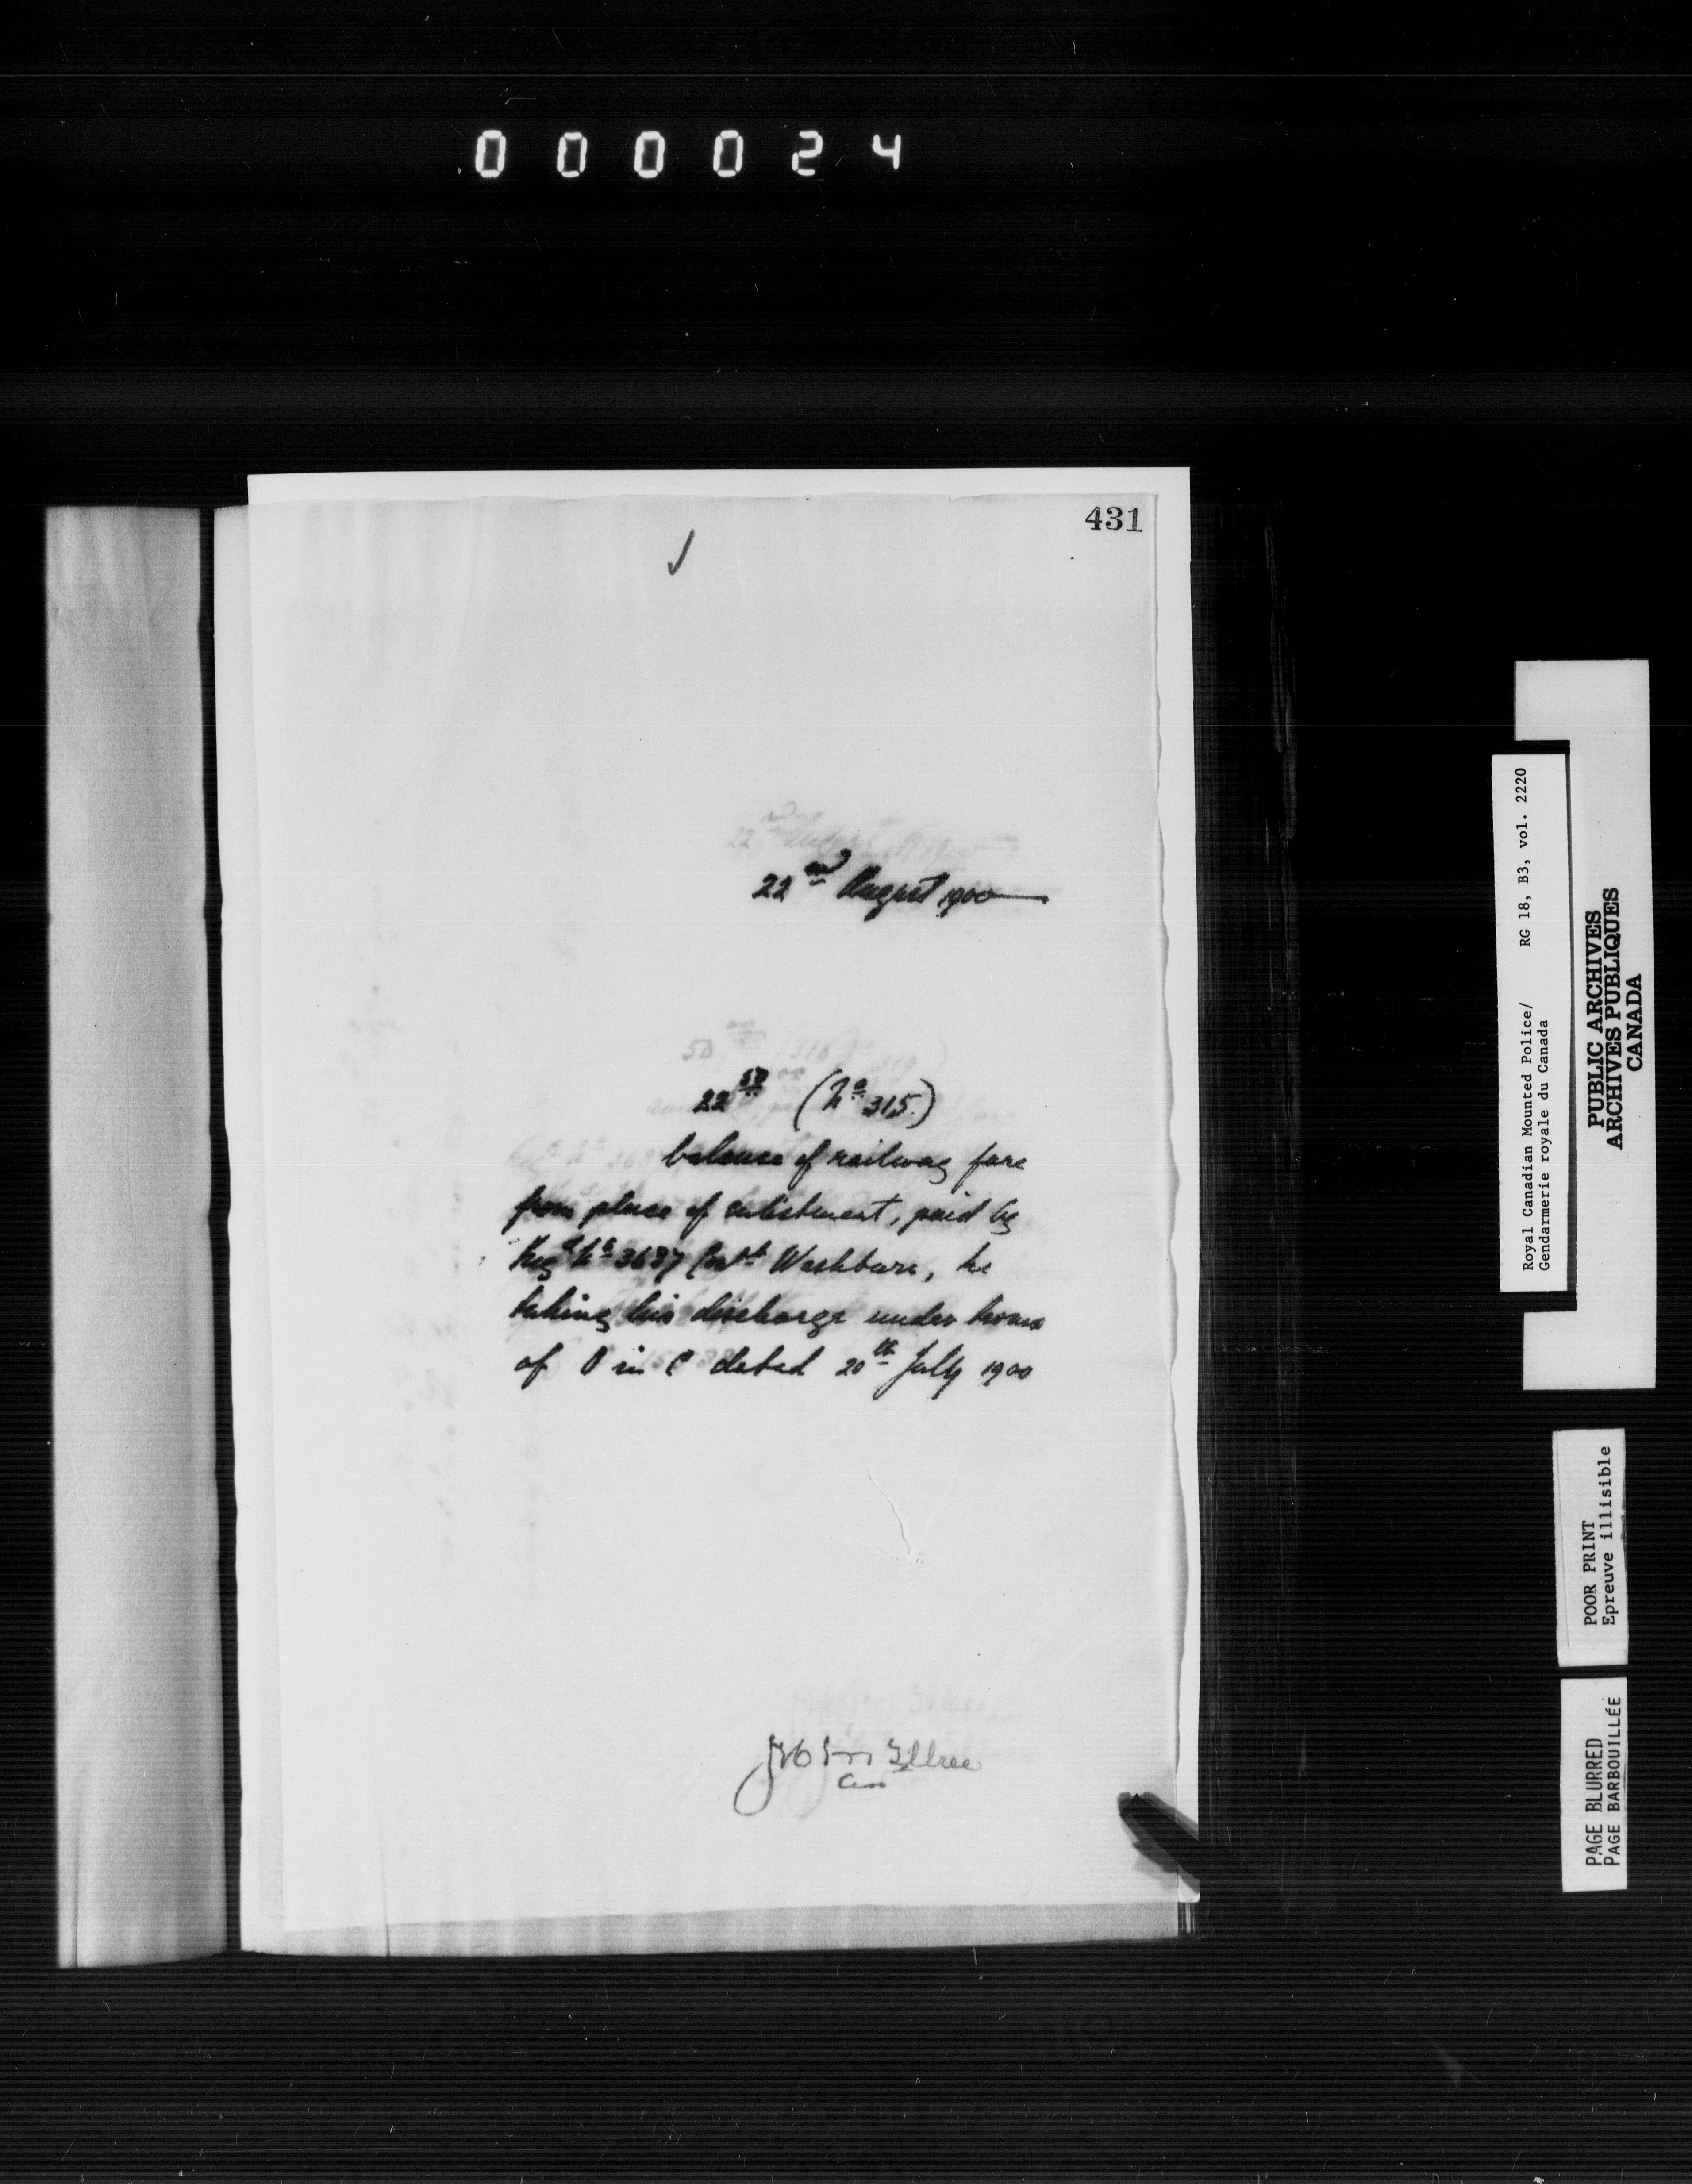 000024
431
22nd August 1900
22 50 (No 315)
balance of railway fare
from place of enlistment, paid by
Reg No 3687 Const Washburn, he
taking his discharge under terms
of O in C dated 20th July 1900
Royal Canadian Mounted Police/ RG 18, B3, vol. 2220
Gendarmerie royale du Canada
PUBLIC ARCHIVES
ARCHIVES PUBLIQUES
CANADA
POOR PRINT
Epreuve illisible
PAGE BLURRED
PAGE BARBOUILLÉE